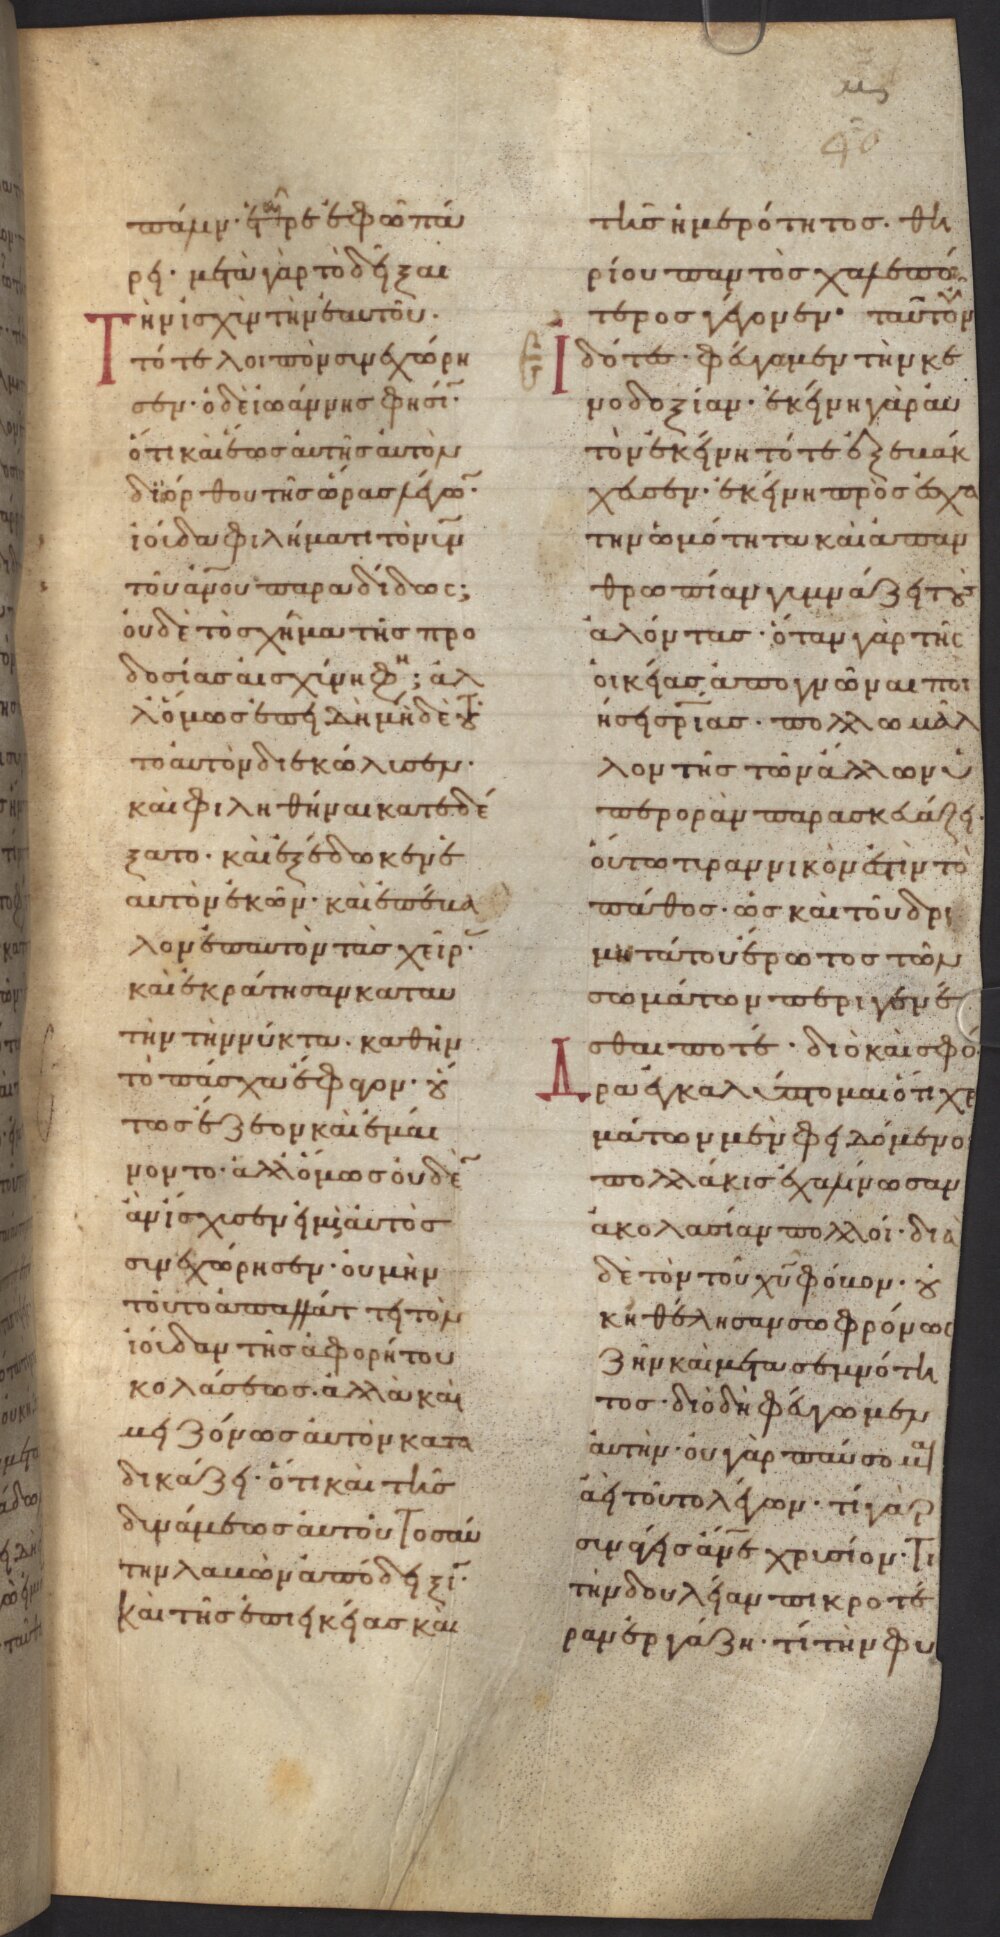 πάλιν· ἑταῖρε ἐφ ὧ πά
ρει· μετὰ γὰρ τὸ δεῖξαι
τὴν ἰσχὶν τὴν ἑαυτοῦ·
τότε λοιπὸν σινεχώρη
σεν· ὁ δὲ ἰωάννης φησί·
ὅτι καὶ ἕως αὐτῆς αὐτὸν
διόρθου τῆς ὥρας λέγων·
ἰούδα φιλήματι τὸν υἱὸν
τοῦ ἀνου παραδίδως;
οὐδὲ τὸ σχῆμα τῆς προ
δοσίας αἰσχίνη φη; ἀλ
λ ὅμως ἐπειδὴ μηδὲ τοῦ
το αὐτὸν διεκώλισεν·
καὶ φιληθῆναι κατεδέ
ξατο· καὶ ἐξέδωκεν ἑ
αυτὸν ἑκών· καὶ ἐπέβα
λον ἐπ αυτὸν τὰς χεῖρ·
καὶ ἐκράτησαν κατ αυ
τὴν τὴν νύκτα· καθ ἣν
τὸ πάσχα ἔφαγον· οὕ
τως ἔζεον καὶ ἐμαί
νοντο· ἀλλ ὅμως οὐδὲν
ἂν ἴσχισεν εἰ μὴ αὐτὸς
σινεχώρησεν· οὐ μὴν
τοῦτο ἀπαλλάττει τὸν
ἰούδαν τῆς ἀφορήτου
κολάσεως· ἀλλὰ καὶ
μειζόνως αὐτὸν κατα
δικάζει· ὅτι καὶ τῆς
δινάμεως αὐτοῦ τοσαύ
την λαβὼν ἀπόδειξι·
καὶ τῆς ἐπιεικείας καὶ
τῆς ἡμερότητος· θη
ρίου παντὸς χαλεπώ
τερος γέγονεν· ταῦτ οὖν
ἰδότες φεύγωμεν τὴν κε
νοδοξίαν· ἐκείνη γὰρ αυ
τὸν ἐκείνη τότε ἐξεβάκ
χευσεν· ἐκείνη πρὸς ἐσχα
την ὠμότητα καὶ ἀπαν
θρωπίαν γιμνάζει τοὺς
ἁλόντας· ὅταν γὰρ τῆς
οἰκείας ἀπογνῶναι ποι
ήσει σρίας· πολλω μᾶλ
λον τῆς τῶν ἄλλων ὑ
περορὰν παρασκευάζει·
οὕτω τιραννικὸν ἐστὶν τὸ
πάθος· ὡς καὶ τοῦ δρι
μητάτου ἔρωτος τῶν
σωμάτων περιγενέ
σθαι ποτέ· διὸ καὶ σφό
δρα ἐγκαλύπτομαι ὅτι χρη
μάτων μὲν φειδόμενοι
πολλάκις ἐχαλίνωσαν
ἀκολασίαν πολλοί· διὰ
δὲ τὸν τοῦ χυ φόβον· οὐ
κ ηθέλησαν σωφρόνως
ζῆν καὶ μετα σεμνότη
τος· διὸ δὴ φεύγωμεν
αὐτήν· οὐ γὰρ παύσομαι
ἀεὶ τοῦτο λέγων· τί γὰρ
σινάγεις ἀνε χρισίον· τί
τὴν δουλείαν πικροτέ
ραν ἐργάζη· τί τὴν φυ